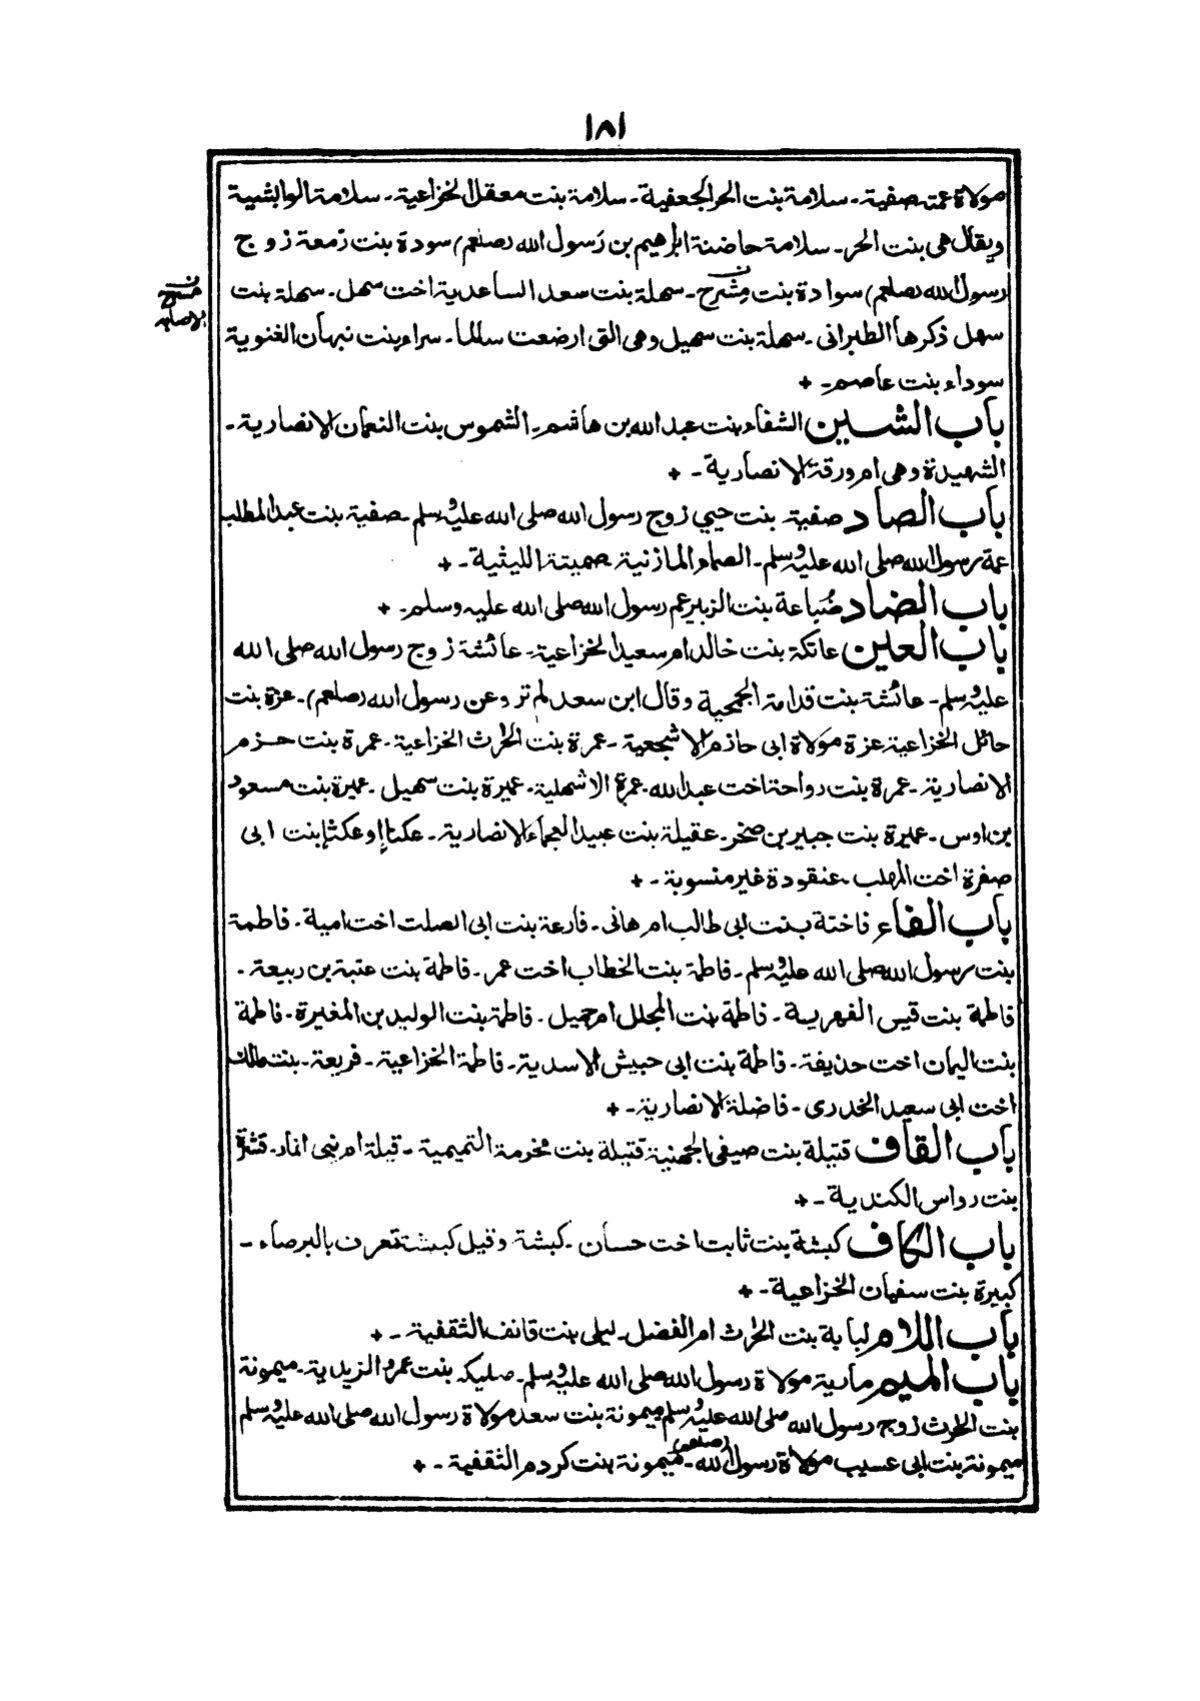 ١٨١
مولاة عمته صفية ـ سلامة بنت الحر الجعفية ـ سلامة بنت معقل الخزاعية ـ سلامة الوابشية
ويقال هى بنت الحر ـ سلامة حاضنة ابراهيم بن رسول الله (صلعم) سودة بنت زمعة زوج
رسول الله (صلعم) سوادة بنت مِشْرح ـ سهلة بنت سعد الساعدية اخت سهل ـ سهلة بنت
سهل ذكرها الطبرانى ـ سهلة بنت سهيل وهى التى ارضعت سالما ـ سراء بنت نبهان الغنوية
سوداء بنت عاصم ـ +
باب الشين الشفاء بنت عبد الله بن هاشم ـ الشموس بنت النعمان الانصارية ـ
الشهيدة وهى ام ورقة الانصارية ـ +
باب الصاد صفية بنت حيي زوج رسول الله صلى الله عليه وسلم ـ صفية بنت عبد المطلب
عمة رسول الله صلى الله عليه وسلم ـ الصماء المازنية صميتة الليثية ـ +
باب الضاد ضُبَاعة بنت الزبير عم رسول الله صلى الله عليه وسلم ـ +
باب العين عاتكة بنت خالد ام سعيد الخزاعية ـ عائشة زوج رسول الله صلى الله
عليه وسلم ـ عائشة بنت قدامة الجمحية وقال ابن سعد لم تر وعن رسول الله (صلعم) ـ عزة بنت
حائل الخزاعية عزة مولاة ابى حازم الاشجعية ـ عمرة بنت الحٰرث الخزاعية ـ عمرة بنت حزم
الانصارية ـ عمرة بنت رواحة اخت عبد الله ـ عمرة الاشهلية ـ عميرة بنت سهيل ـ عميرة بنت مسعود
بن اوس ـ عميرة بنت جبير بن صخر ـ عقيلة بنت عبيد العجماء الانصارية ـ او بنت ابى
صفرة اخت المهلب ـ عنقودة غير منسوبة ـ +
باب الفاء فاختة بنت ابى طالب ام هانى ـ فارعة بنت ابى الصلت اخت امية ـ فاطمة
بنت رسول الله صلى الله عليه وسلم ـ فاطمة بنت الخطاب اخت عمر ـ فاطمة بنت عتبة بن ربيعة ـ
فاطمة بنت قيس الفهرية ـ فاطمة بنت المجلل ام جميل ـ فاطمة بنت الوليد بن المغيرة ـ فاطمة
بنت اليمان اخت حذيفة ـ فاطمة بنت ابى حبيش الاسدية ـ فاطمة الخزاعية ـ فريعة ـ بنت مالك
اخت ابى سعيد الخدرى ـ فاضلة الانصارية ـ +
باب القاف قتيلة بنت صيفى الجهنية قتيلة بنت مخرمة التميمية ـ قيلة ام بنى انمار ـ
بنت رواس الكندية ـ +
باب الكاف كبشة بنت ثابت اخت حسان ـ كبشة وقيل كبيشة تعرف بالبرصاء ـ
كبيرة بنت سفيان الخزاعية ـ +
باب اللام لبابة بنت الحٰرث ام الفضل ـ ليلى بنت قانف الثقفية ـ +
باب الميم مارية مولاة رسول الله صلى الله عليه وسلم ـ مليكة بنت عمرو الزيدية ـ ميمونة
بنت الحٰرث زوج رسول الله صلى الله عليه وسلم ميمونة بنت سعد مولاة رسول الله صلى الله عليه وسلم
ميمونة بنت ابى عسيب مولاة رسول الله (صلعم) ـ ميمونة بنت كردم الثقفية ـ +